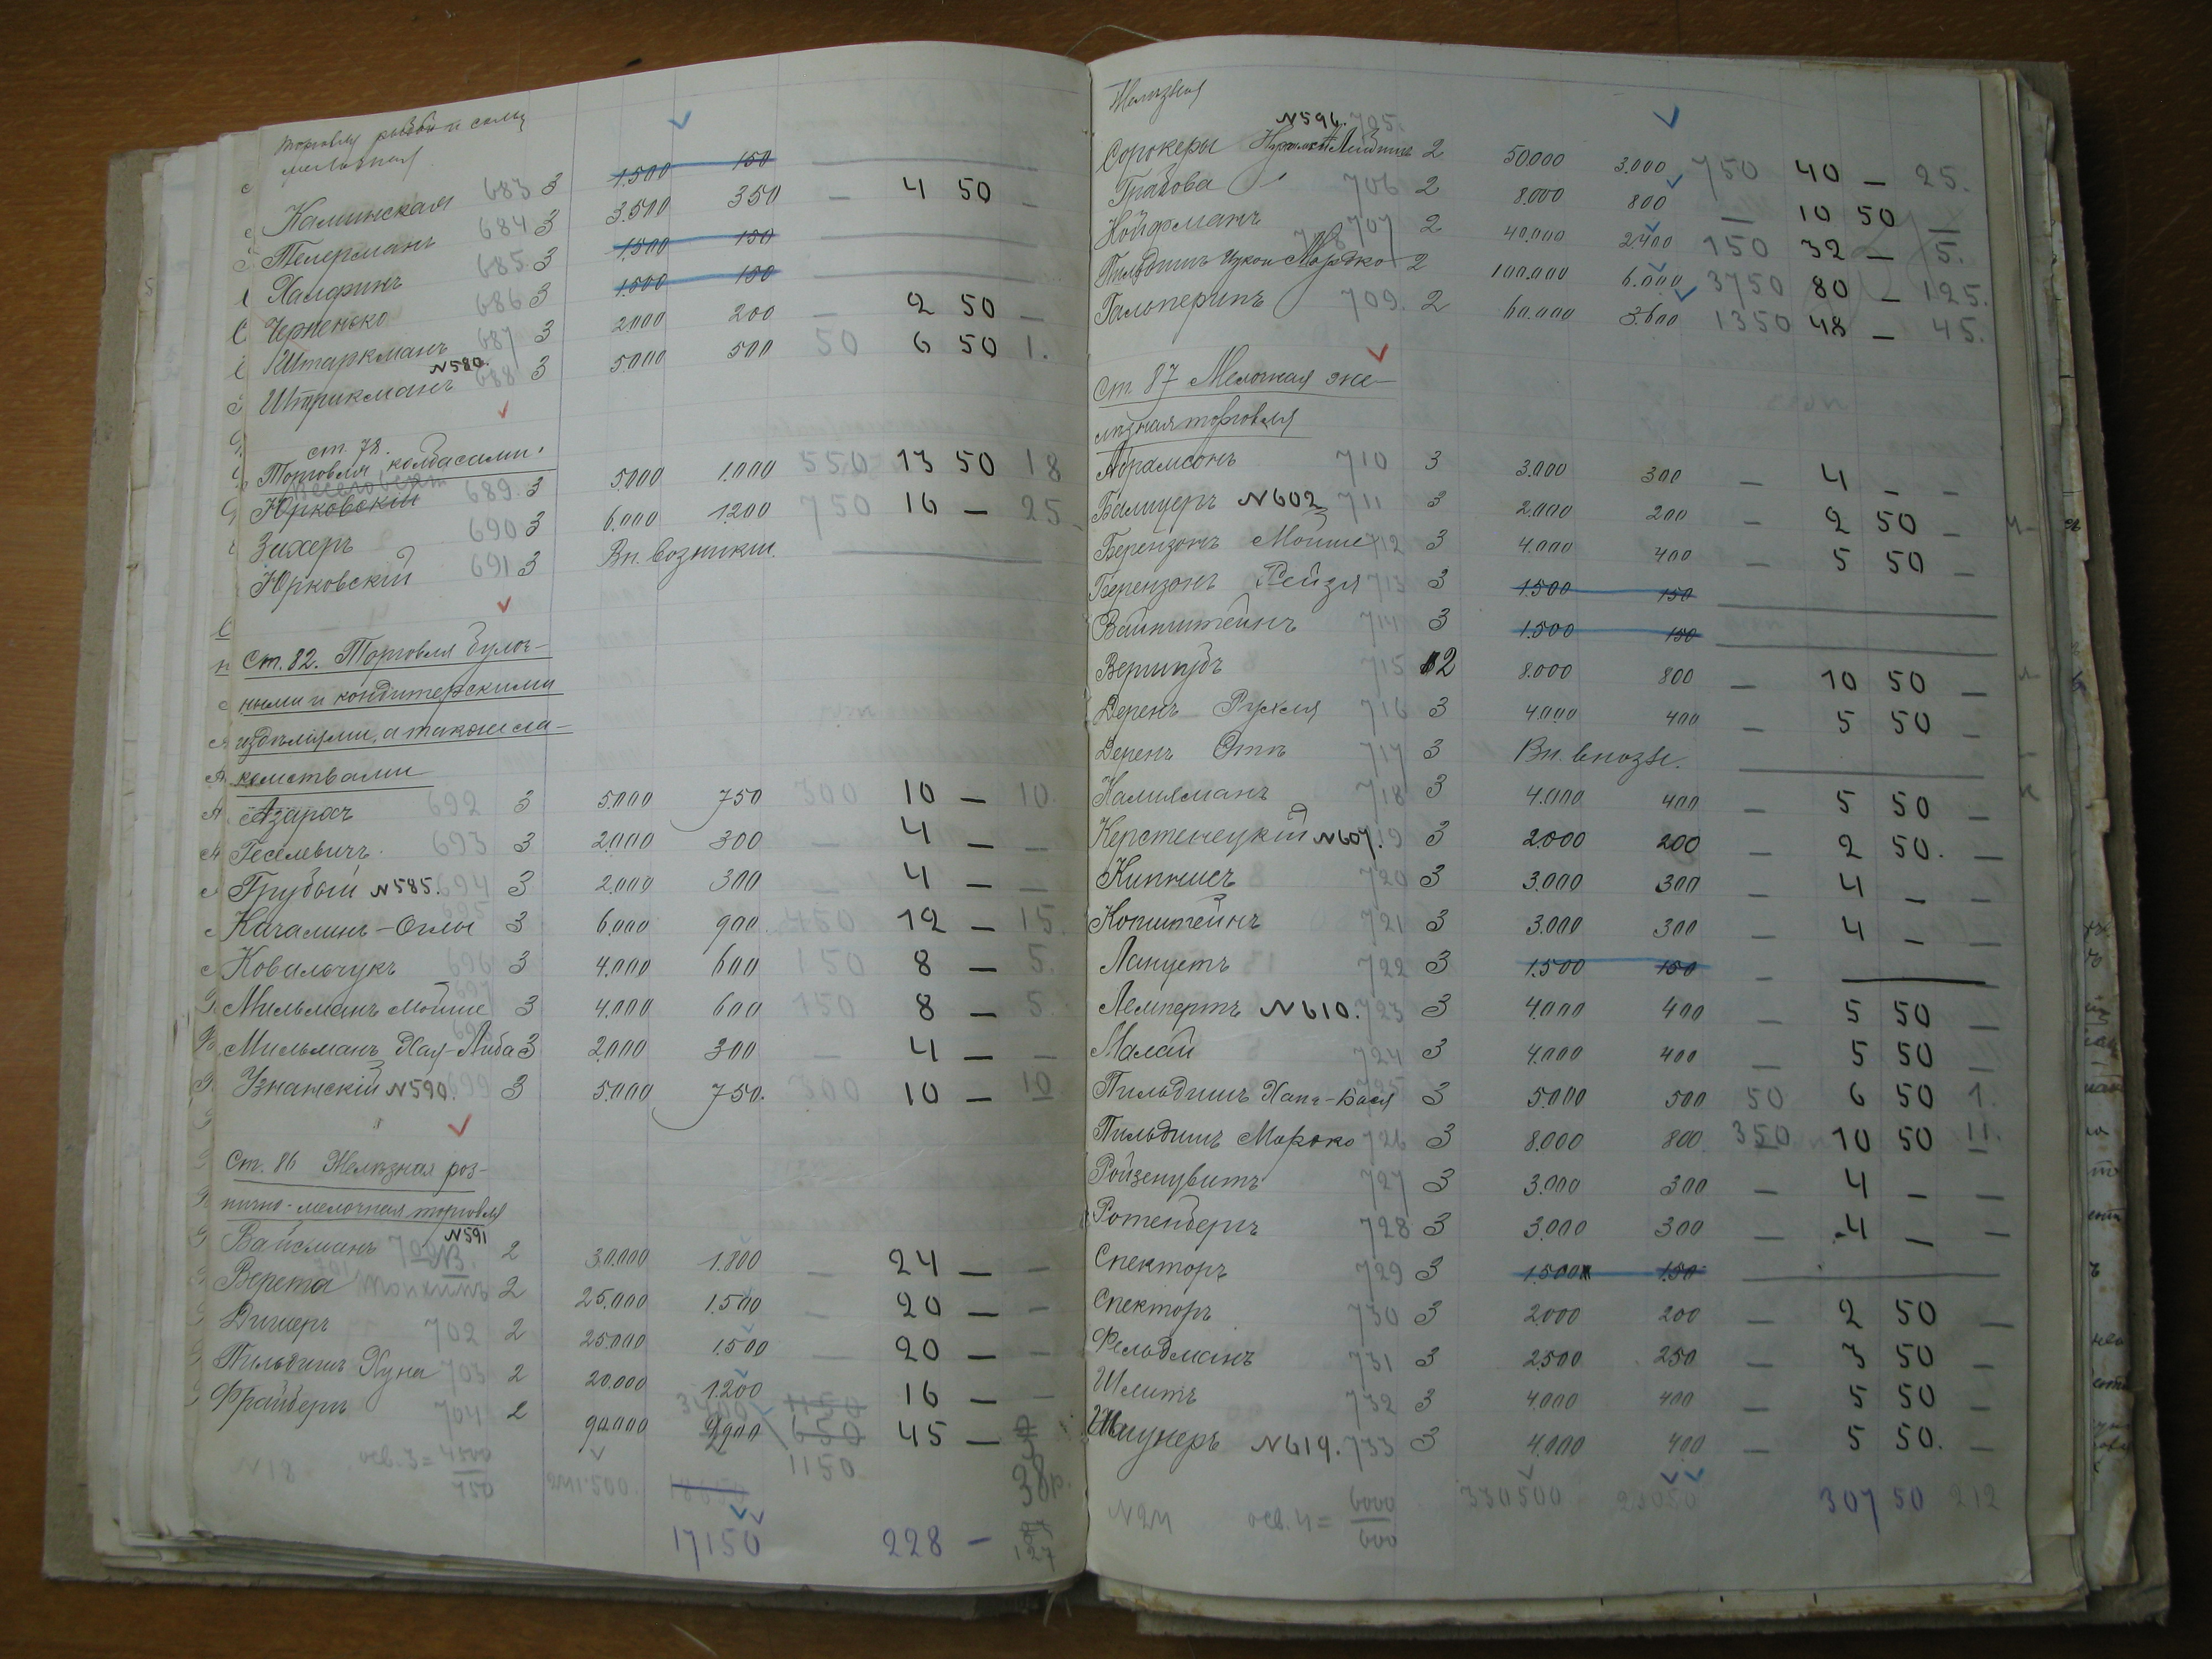 Торговля рыбой и солью
мелочная
Калинская 683 3 1.500 150
Телерманъ 684 3 3.500 350 — 4 50 —
Халфинъ 685 3 1500 150
Черненко 686 3 1.500 150
Штаркманъ 687 3 2000 200 — 2 50 —
Штрикманъ N580. 688 3 5000 500 50 6 50 1.
ст. 78.
Торговля колбасами.
Юрковскій 689. 3 5000 1.000 550 13 50 18
Зихеръ 690 3 6.000 1200 750 16 — 25
Юрковскій 691 3 Вн. возникш.
Ст. 82. Торговля булоч-
ными и кондитерскими
издѣліями, а также ла-
комствами
Азарохъ 692 3 5.000 750 300 10 — 10.
Геселевичъ 693 3 2000 300 — 4 — —
Грубый N585. 694 3 2.000 300 — 4 — —
Качалинъ-Оглы 695 3 6.000 900 450 12 — 15.
Ковальчукъ 696 3 4.000 600 150 8 — 5.
Мильманъ Мойше 697 3 4.000 600 150 8 — 5.
Мильманъ Хая-Либа 3 2.000 300 — 4 — —
Узнанскій N590. 699 3 5.000 750. 300 10 — 10
Ст. 86 Желѣзная роз-
нично-мелочная торговля
Вайсманъ 700 N591 2 30.000 1.800 — 24 — —
Верета 2 25.000 1.500 — 20 — —
Дишеръ 702 2 25000 1.500 — 20 — —
Пильдишъ Хуна 703 2 20.000 1.200 16 — —
Фрайбергъ 704 2 90.000 2900 650 45 —
1150
N18 осв. 3 = 4500
750
17150 228 — 127
Желѣзная
N596. 705.
Сорокеры 2 50.000 3.000 750 40 — 25.
Грабова 706 2 8.000 800 — 10 50 —
Койфманъ 707 2 40.000 2400 150 32 — 5.
Пильдишъ Мордко 2 100.000 6.000 3750 80 — 125.
Гальперинъ 709. 2 60.000 3.600 1350 48 — 45.
Ст. 87 Мелочная же-
лѣзная торговля
Абрамсонъ 710 3 3.000 300 — 4 — —
Балицеръ N602 711 3 2.000 200 — 2 50 —
Берензонъ Мойше 712 3 4.000 400 — 5 50 —
Берензонъ Рейзя 713 3 1.500 150
Вайнштейнъ 714 3 1.500 150
Вергилудъ 715 2 8.000 800 — 10 50 —
Деренъ Рухля 716 3 4.000 400 — 5 50 —
Деренъ Этя 717 3 Вн. внозь.
Калихманъ 718 3 4.000 400 — 5 50 —
Керстенецкій N607. 3 2000 200 — 2 50. —
Кипнисъ 720 3 3.000 300 — 4 — —
Копштейнъ 721 3 3.000 300 — 4 — —
Лапцетъ 722 3 1.500 150 —
Лемпертъ N610. 723 3 4.000 400 — 5 50 —
Малай 724 3 4.000 400 — 5 50 —
Пильдишъ Хана-Бася 725 3 5.000 500 50 6 50 1.
Пильдишъ Мордко 726 3 8.000 800 350 10 50 11.
Ройзенцвитъ 727 3 3.000 300 — 4 — —
Ротенбергъ 728 3 3.000 300 — 4 — —
Спекторъ 729 3 1.500 150
Спекторъ 730 3 2000 200 — 2 50 —
Фельдманъ 731 3 2500 250 — 3 50 —
Шлитъ 732 3 4.000 400 — 5 50 —
Шпунеръ N619. 733 3 4.000 400 — 5 50. —
N24 осв. 4 = 6000
600
330500 23080 307 50 212